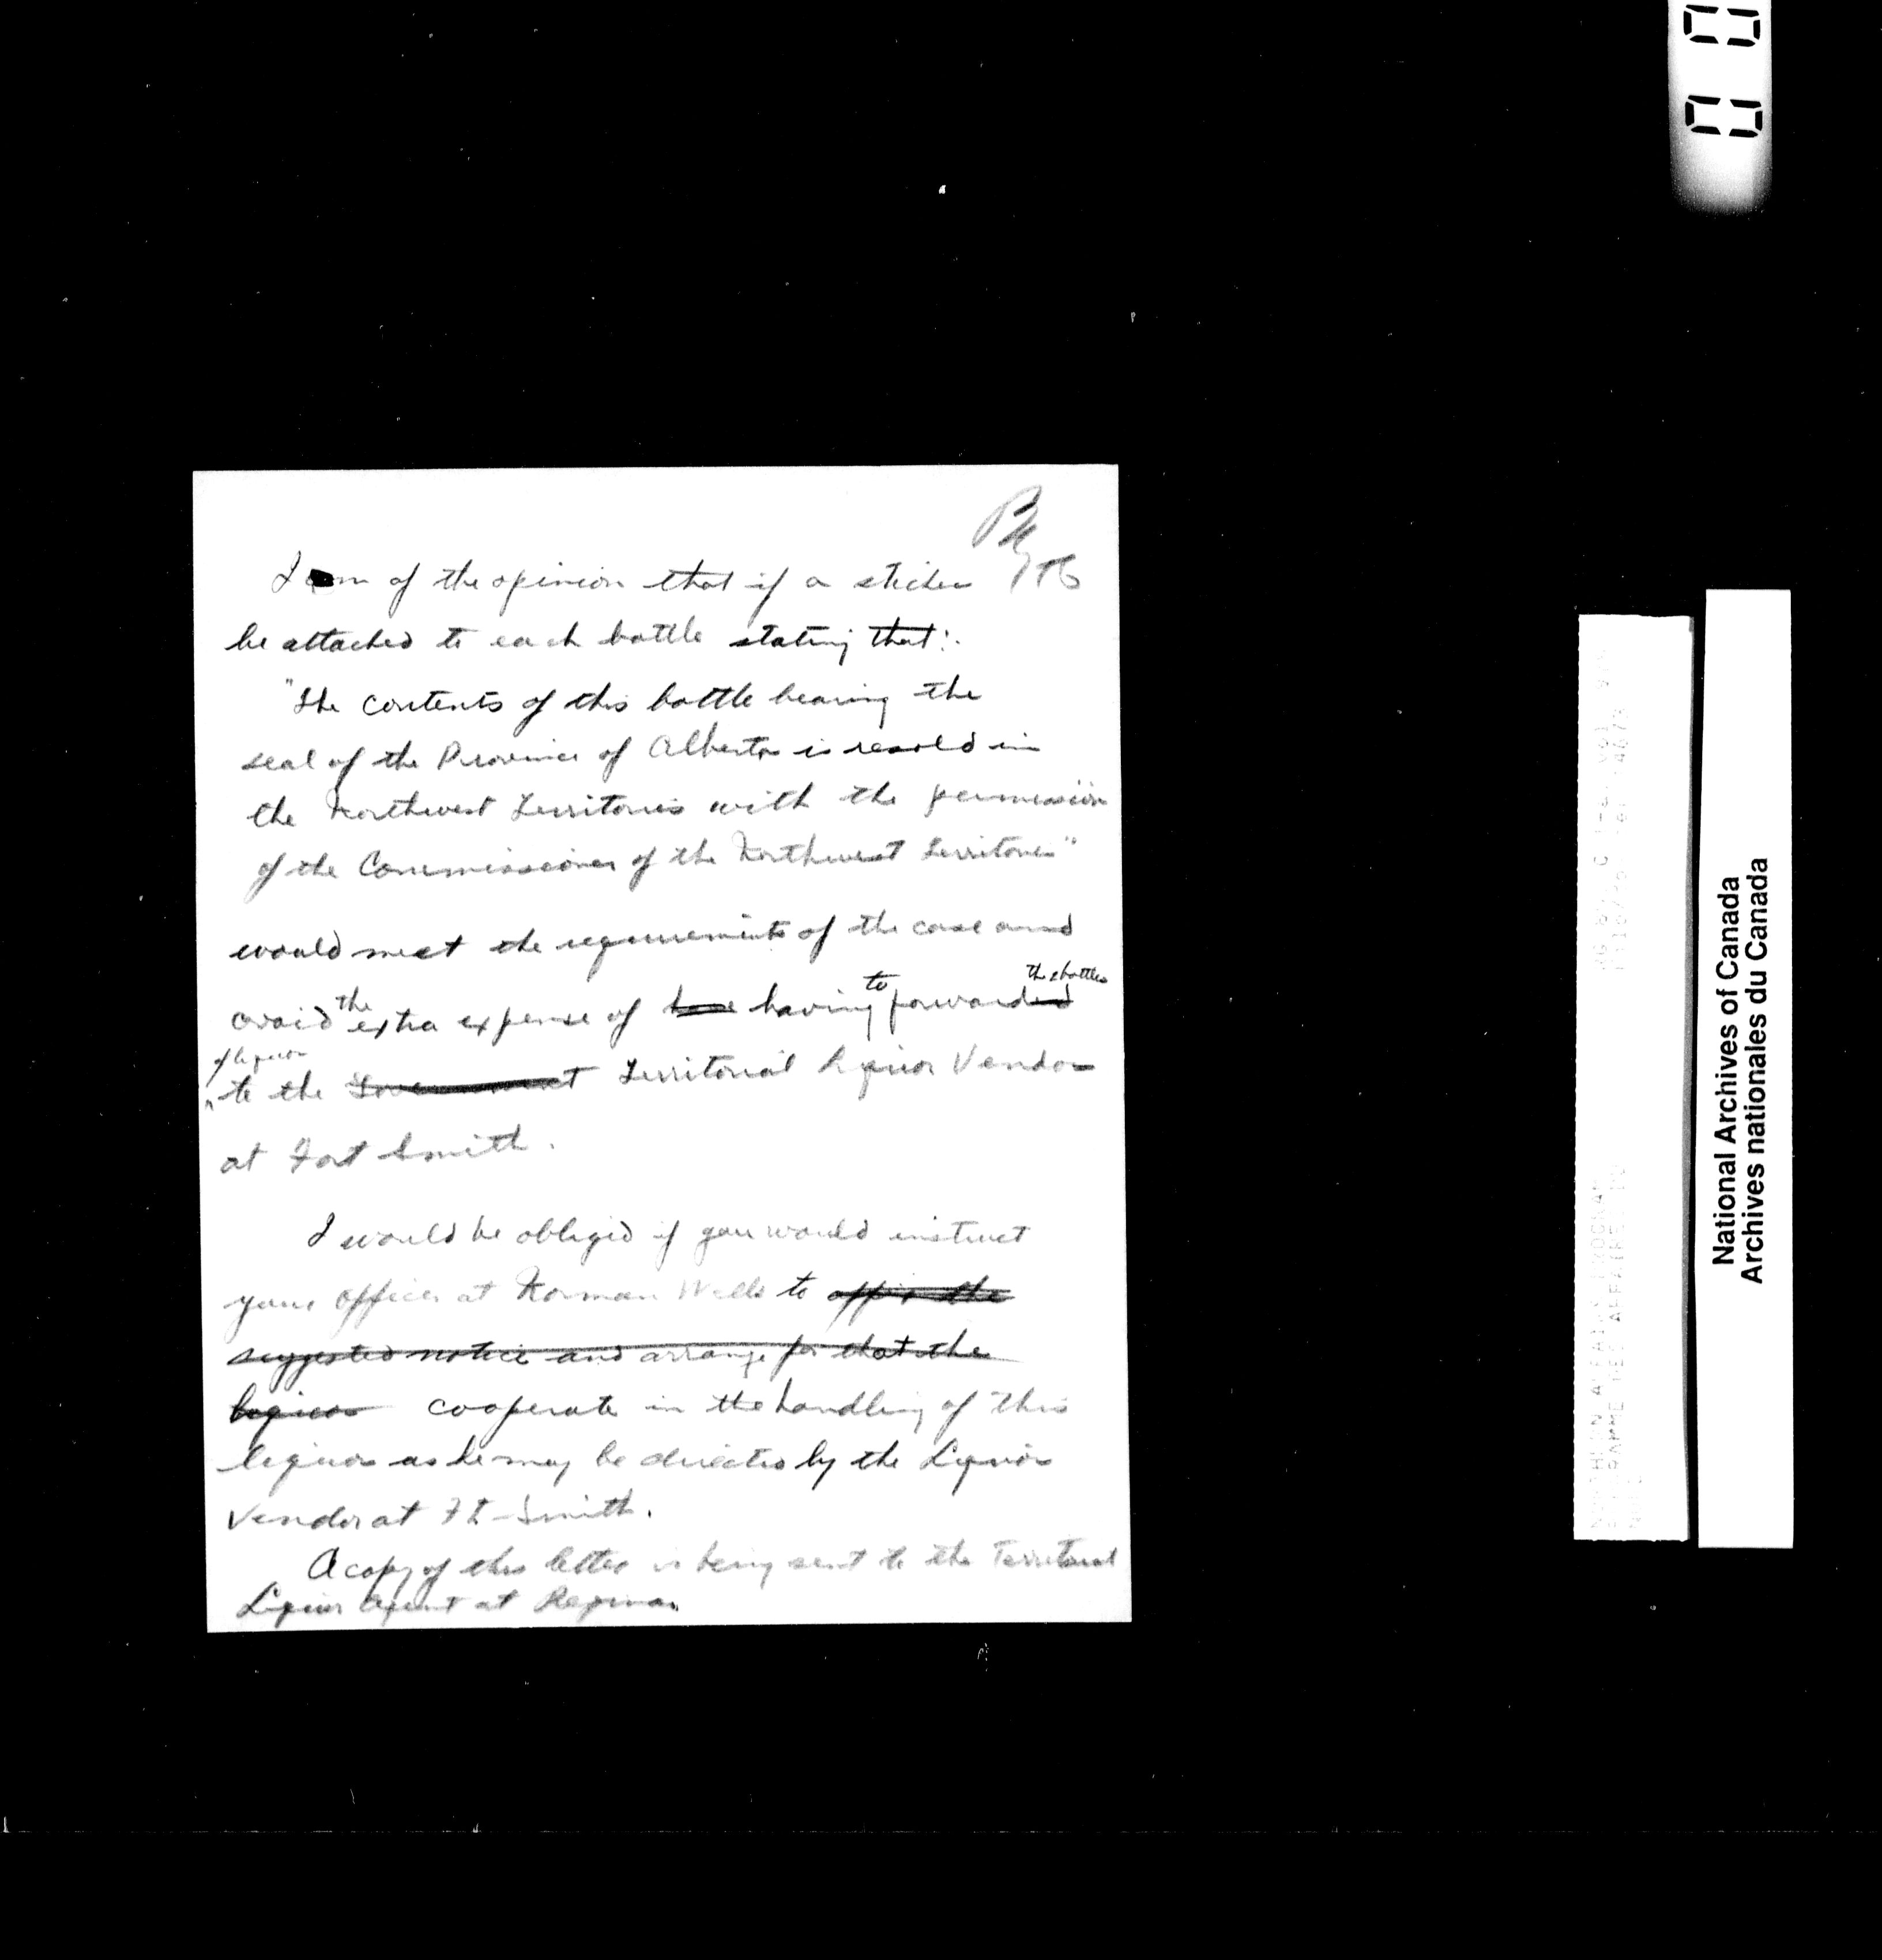 I am of the opinion that if a sticker
be attached to each bottle stating that:
"The contents of this bottle bearing the
seal of the Province of Alberta is resold in
the Northwest Territories with the permission
of the Commissioner of the Northwest Territories"
would meet the requirements of the case and
avoid the extra expense of have having to forwarded the bottles
of liquor
to the Government Territorial Liquor Vendor
at Fort Smith.
I would be obliged if you would instruct
your officer at Norman Wells to affix the
suggested notice and arrange for that the
liquor cooperate in the handling of this
liquor as he may be directed by the Liquor
Vendor at Ft. Smith.
A copy of this letter is being sent to the Territorial
Liquor Agent at Regina.
National Archives of Canada
Archives nationales du Canada